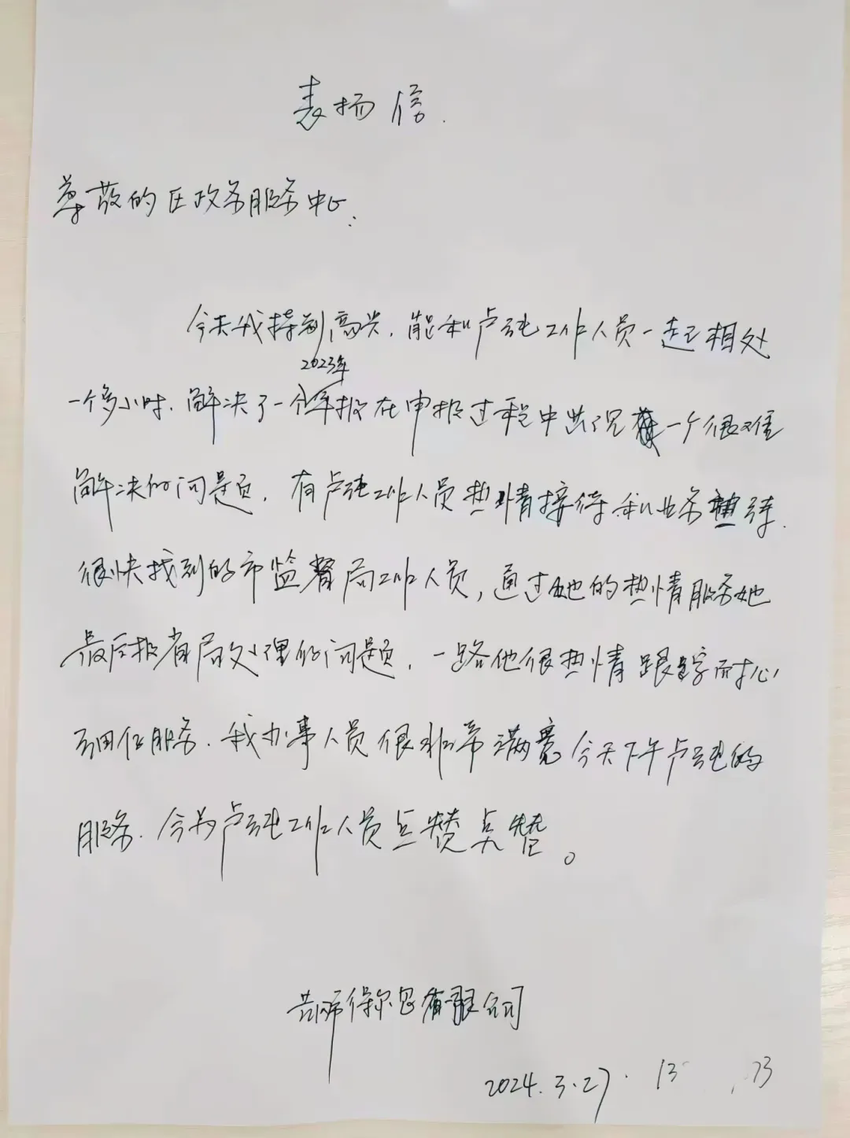 表扬信.
尊敬的区政务服务中心:
今天我特别高兴，能和卢 工作人员一起相处
2023年
一个多小时.解决了一个年报在申报过程中出现 一个很难
解决的问题，有卢 工作人员热情接待和业务 练.
很快找到的市监督局工作人员，通过她的热情服务她
最后报省局处理的问题，一路他很热情跟踪耐心
细 服务.我办事人员很非常满意今天下午卢 的
服务.今为卢 工作人员点赞点赞。
得尔 有限公司
2024.3.27. 13 73